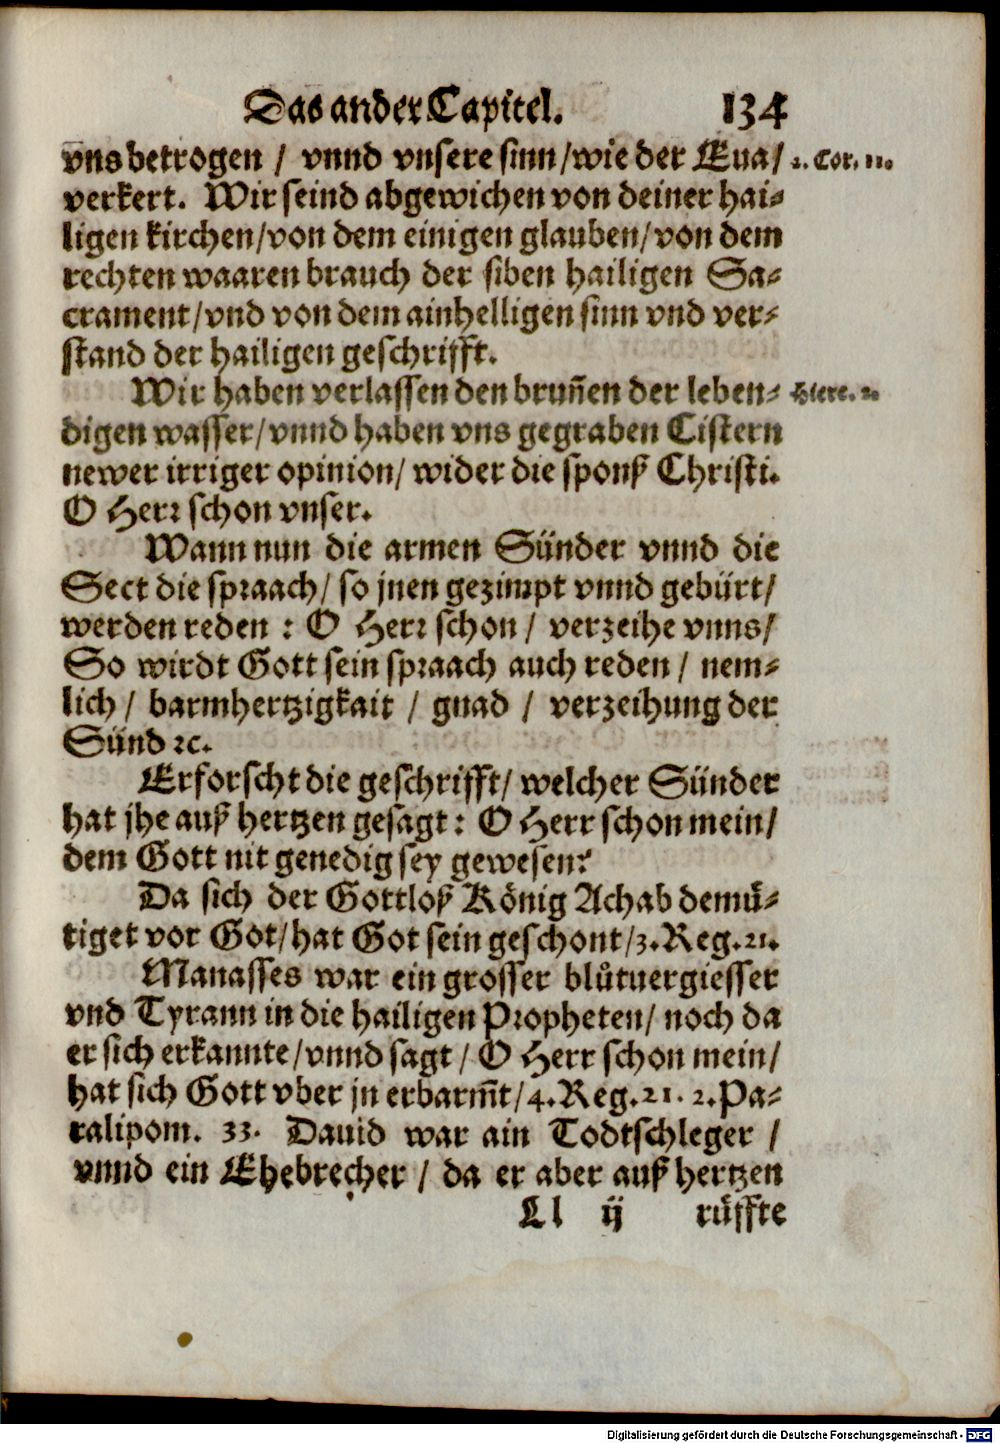 Das ander Capitel. 134
vns betrogen / vnnd vnsere sinn/wie der Eua/ 2. Cor. 11.
verkert. Wir seind abgewichen von deiner hai-
ligen kirchen/von dem einigen glauben/von dem
rechten waaren brauch der siben hailigen Sa-
crament/vnd von dem ainhelligen sinn vnd ver-
stand der hailigen geschrifft.
Wir haben verlassen den brun̄en der leben- Hiere. 2.
digen wasser/vnnd haben vns gegraben Cistern
newer irriger opinion/ wider die sponß Christi.
O Herr schon vnser.
Wann nun die armen Sünder vnnd die
Sect die spraach/ so jnen gezimpt vnnd gebürt/
werden reden : O Herr schon / verzeihe vnns/
So wirdt Gott sein spraach auch reden / nem-
lich / barmhertzigkait / gnad / verzeihung der
Sünd ꝛc.
Erforscht die geschrifft/ welcher Sünder
hat jhe auß hertzen gesagt: O Herr schon mein/
dem Gott nit genedig sey gewesen?
Da sich der Gottloß König Achab demuͤ-
tiget vor Got/hat Got sein geschont/3.Reg.21.
Manasses war ein grosser bluͦtuergiesser
vnd Tyrann in die hailigen Propheten/ noch da
er sich erkannte/vnnd sagt / O Herr schon mein/
hat sich Gott vber jn erbarm̄t/4.Reg.21. 2.Pa-
ralipom. 33. Dauid war ain Todtschleger /
vnnd ein Ehebrecher / da er aber auß hertzen
Ll ij ruͤffte
Digitalisierung gefördert durch die Deutsche Forschungsgemeinschaft - DFG